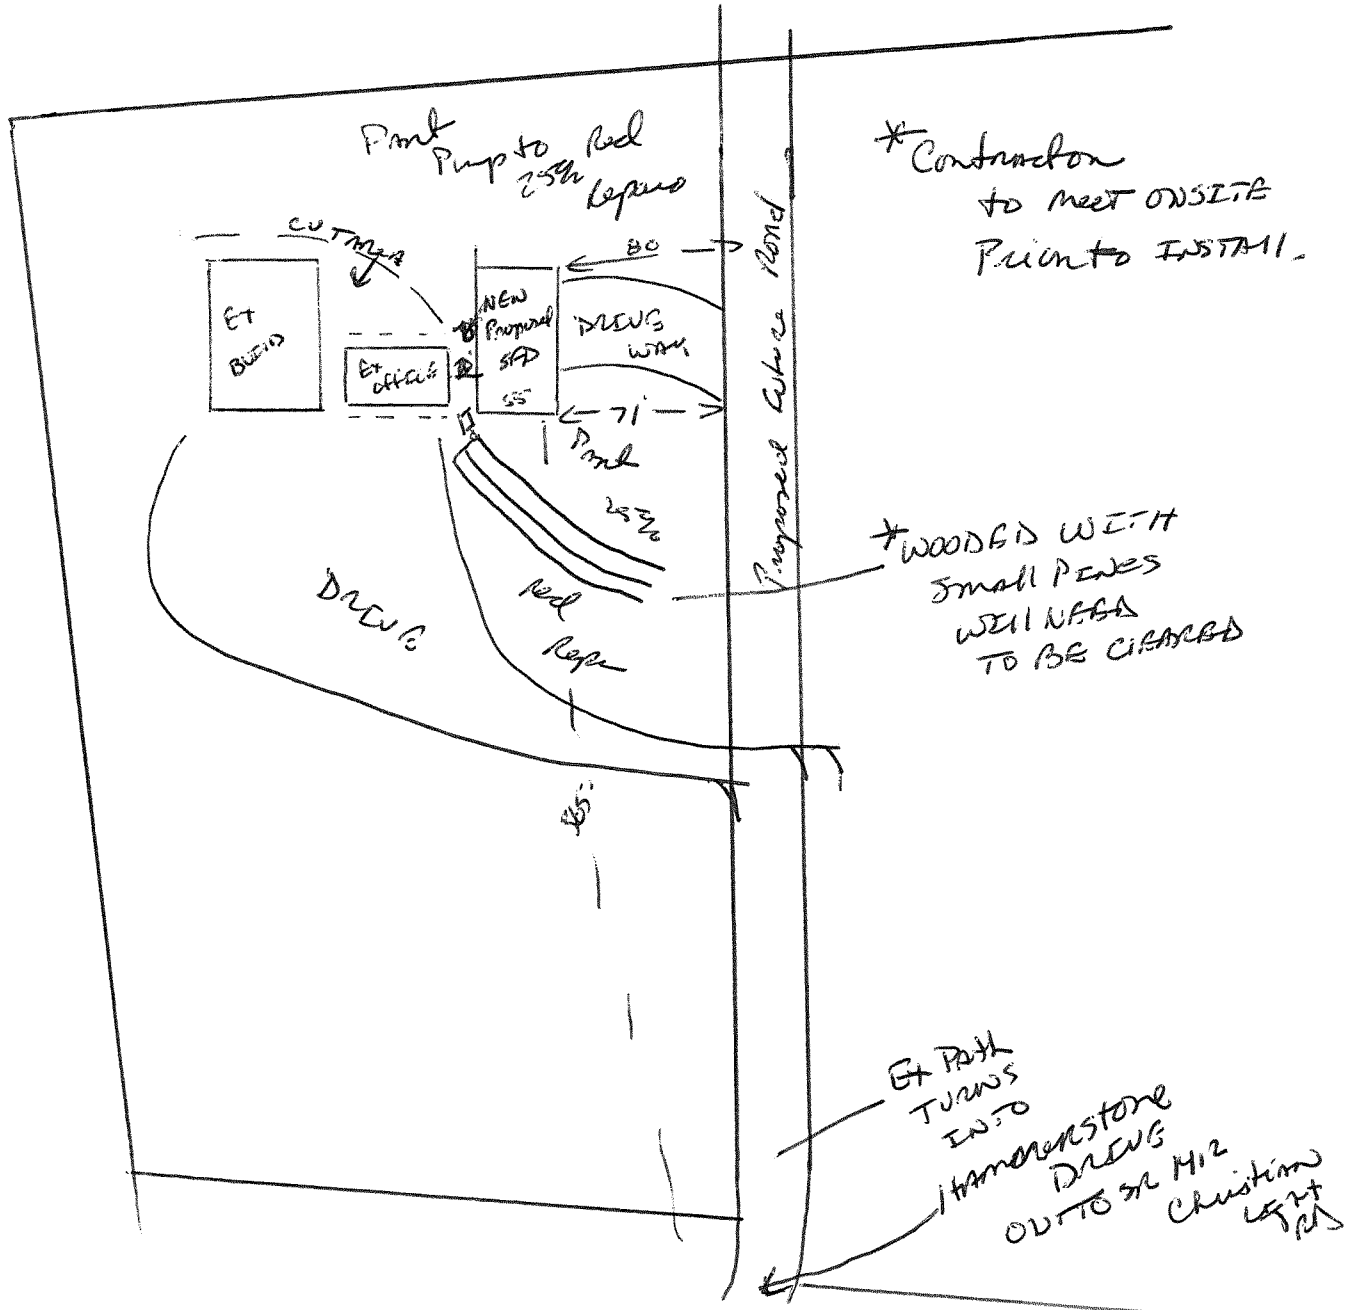 Pump to
25% Red
Repair
* Contractor
to meet ONSITE
Prior to INSTALL.
CUT AREA
80
EX
BUILD
EX
OFFICE
NEW
Proposed
SFD
55
DRIVE
WAY
71'
Proposed Future Road
25%
Red
Repair
DRIVE
* WOODED WITH
Small PINES
Will NEED
TO BE CLEARED
EX PATH
TURNS
INTO
HAMMERSTONE
DRIVE
OUT TO SR 1412
Christian
LIGHT
RD